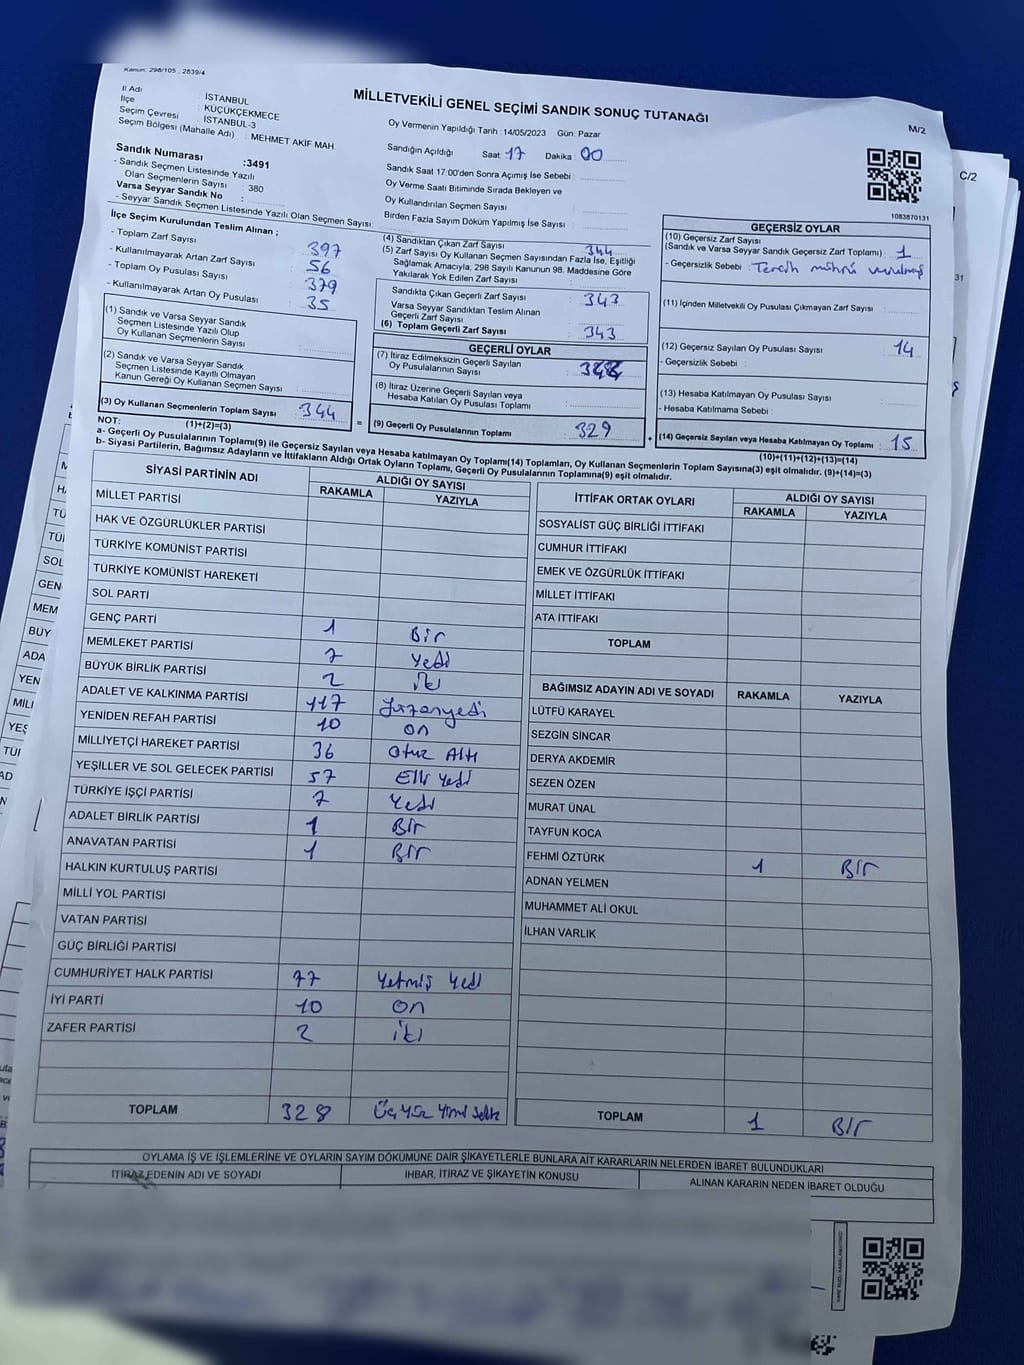 Kanun: 298/105 , 2839/4
MİLLETVEKİLİ GENEL SEÇİMİ SANDIK SONUÇ TUTANAĞI
M/2
C/2
İl Adı : İSTANBUL
İlçe : KÜÇÜKÇEKMECE
Seçim Çevresi : İSTANBUL-3
Seçim Bölgesi (Mahalle Adı) : MEHMET AKİF MAH.
Sandık Numarası :3491
- Sandık Seçmen Listesinde Yazılı
Olan Seçmenlerin Sayısı : 380
Varsa Seyyar Sandık No :
- Seyyar Sandık Seçmen Listesinde Yazılı Olan Seçmen Sayısı:
Oy Vermenin Yapıldığı Tarih : 14/05/2023 Gün: Pazar
Sandığın Açıldığı Saat: 17 Dakika : 00
Sandık Saat 17:00'den Sonra Açılmış İse Sebebi :
Oy Verme Saati Bitiminde Sırada Bekleyen ve
Oy Kullandırılan Seçmen Sayısı :
Birden Fazla Sayım Döküm Yapılmış İse Sayısı :
1083870131
İlçe Seçim Kurulundan Teslim Alınan ;
- Toplam Zarf Sayısı : 397
- Kullanılmayarak Artan Zarf Sayısı : 56
- Toplam Oy Pusulası Sayısı : 379
- Kullanılmayarak Artan Oy Pusulası : 35
(1) Sandık ve Varsa Seyyar Sandık
Seçmen Listesinde Yazılı Olup
Oy Kullanan Seçmenlerin Sayısı :
(2) Sandık ve Varsa Seyyar Sandık
Seçmen Listesinde Kayıtlı Olmayan
Kanun Gereği Oy Kullanan Seçmen Sayısı :
(3) Oy Kullanan Seçmenlerin Toplam Sayısı : 344
(1)+(2)=(3)
(4) Sandıktan Çıkan Zarf Sayısı : 344
(5) Zarf Sayısı Oy Kullanan Seçmen Sayısından Fazla İse, Eşitliği
Sağlamak Amacıyla, 298 Sayılı Kanunun 98. Maddesine Göre
Yakılarak Yok Edilen Zarf Sayısı :
Sandıkta Çıkan Geçerli Zarf Sayısı : 343
Varsa Seyyar Sandıktan Teslim Alınan
Geçerli Zarf Sayısı :
(6) Toplam Geçerli Zarf Sayısı : 343
GEÇERLİ OYLAR
(7) İtiraz Edilmeksizin Geçerli Sayılan
Oy Pusulalarının Sayısı :
(8) İtiraz Üzerine Geçerli Sayılan veya
Hesaba Katılan Oy Pusulası Toplamı :
= (9) Geçerli Oy Pusulalarının Toplamı : 329 +
GEÇERSİZ OYLAR
(10) Geçersiz Zarf Sayısı
(Sandık ve Varsa Seyyar Sandık Geçersiz Zarf Toplamı) : 1
- Geçersizlik Sebebi : Tercih mührü vurulmuş
(11) İçinden Milletvekili Oy Pusulası Çıkmayan Zarf Sayısı :
(12) Geçersiz Sayılan Oy Pusulası Sayısı : 14
- Geçersizlik Sebebi :
(13) Hesaba Katılmayan Oy Pusulası Sayısı :
- Hesaba Katılmama Sebebi :
(14) Geçersiz Sayılan veya Hesaba Katılmayan Oy Toplamı : 15
(10)+(11)+(12)+(13)=(14)
NOT:
a- Geçerli Oy Pusulalarının Toplamı(9) ile Geçersiz Sayılan veya Hesaba katılmayan Oy Toplamı(14) Toplamları, Oy Kullanan Seçmenlerin Toplam Sayısına(3) eşit olmalıdır. (9)+(14)=(3)
b- Siyasi Partilerin, Bağımsız Adayların ve İttifakların Aldığı Ortak Oyların Toplamı, Geçerli Oy Pusulalarının Toplamına(9) eşit olmalıdır.
SİYASİ PARTİNİN ADI ALDIĞI OY SAYISI
RAKAMLA YAZIYLA
MİLLET PARTİSİ
HAK VE ÖZGÜRLÜKLER PARTİSİ
TÜRKİYE KOMÜNİST PARTİSİ
TÜRKİYE KOMÜNİST HAREKETİ
SOL PARTİ
GENÇ PARTİ 1 Bir
MEMLEKET PARTİSİ 7 Yedi
BÜYÜK BİRLİK PARTİSİ 2 iki
ADALET VE KALKINMA PARTİSİ 117 yüzonyedi
YENİDEN REFAH PARTİSİ 10 on
MİLLİYETÇİ HAREKET PARTİSİ 36 otuz Altı
YEŞİLLER VE SOL GELECEK PARTİSİ 57 Elli Yedi
TÜRKİYE İŞÇİ PARTİSİ 7 Yedi
ADALET BİRLİK PARTİSİ 1 Bir
ANAVATAN PARTİSİ 1 Bir
HALKIN KURTULUŞ PARTİSİ
MİLLİ YOL PARTİSİ
VATAN PARTİSİ
GÜÇ BİRLİĞİ PARTİSİ
CUMHURİYET HALK PARTİSİ 77 Yetmiş Yedi
İYİ PARTİ 10 on
ZAFER PARTİSİ 2 iki
TOPLAM 328 Üç Yüz Yirmi Sekiz
İTTİFAK ORTAK OYLARI ALDIĞI OY SAYISI
RAKAMLA YAZIYLA
SOSYALİST GÜÇ BİRLİĞİ İTTİFAKI
CUMHUR İTTİFAKI
EMEK VE ÖZGÜRLÜK İTTİFAKI
MİLLET İTTİFAKI
ATA İTTİFAKI
TOPLAM
BAĞIMSIZ ADAYIN ADI VE SOYADI RAKAMLA YAZIYLA
LÜTFÜ KARAYEL
SEZGİN SİNCAR
DERYA AKDEMİR
SEZEN ÖZEN
MURAT ÜNAL
TAYFUN KOCA
FEHMİ ÖZTÜRK 1 Bir
ADNAN YELMEN
MUHAMMET ALİ OKUL
İLHAN VARLIK
TOPLAM 1 Bir
OYLAMA İŞ VE İŞLEMLERİNE VE OYLARIN SAYIM DÖKÜMÜNE DAİR ŞİKAYETLERLE BUNLARA AİT KARARLARIN NELERDEN İBARET BULUNDUKLARI
İTİRAZ EDENİN ADI VE SOYADI İHBAR, İTİRAZ VE ŞİKAYETİN KONUSU ALINAN KARARIN NEDEN İBARET OLDUĞU